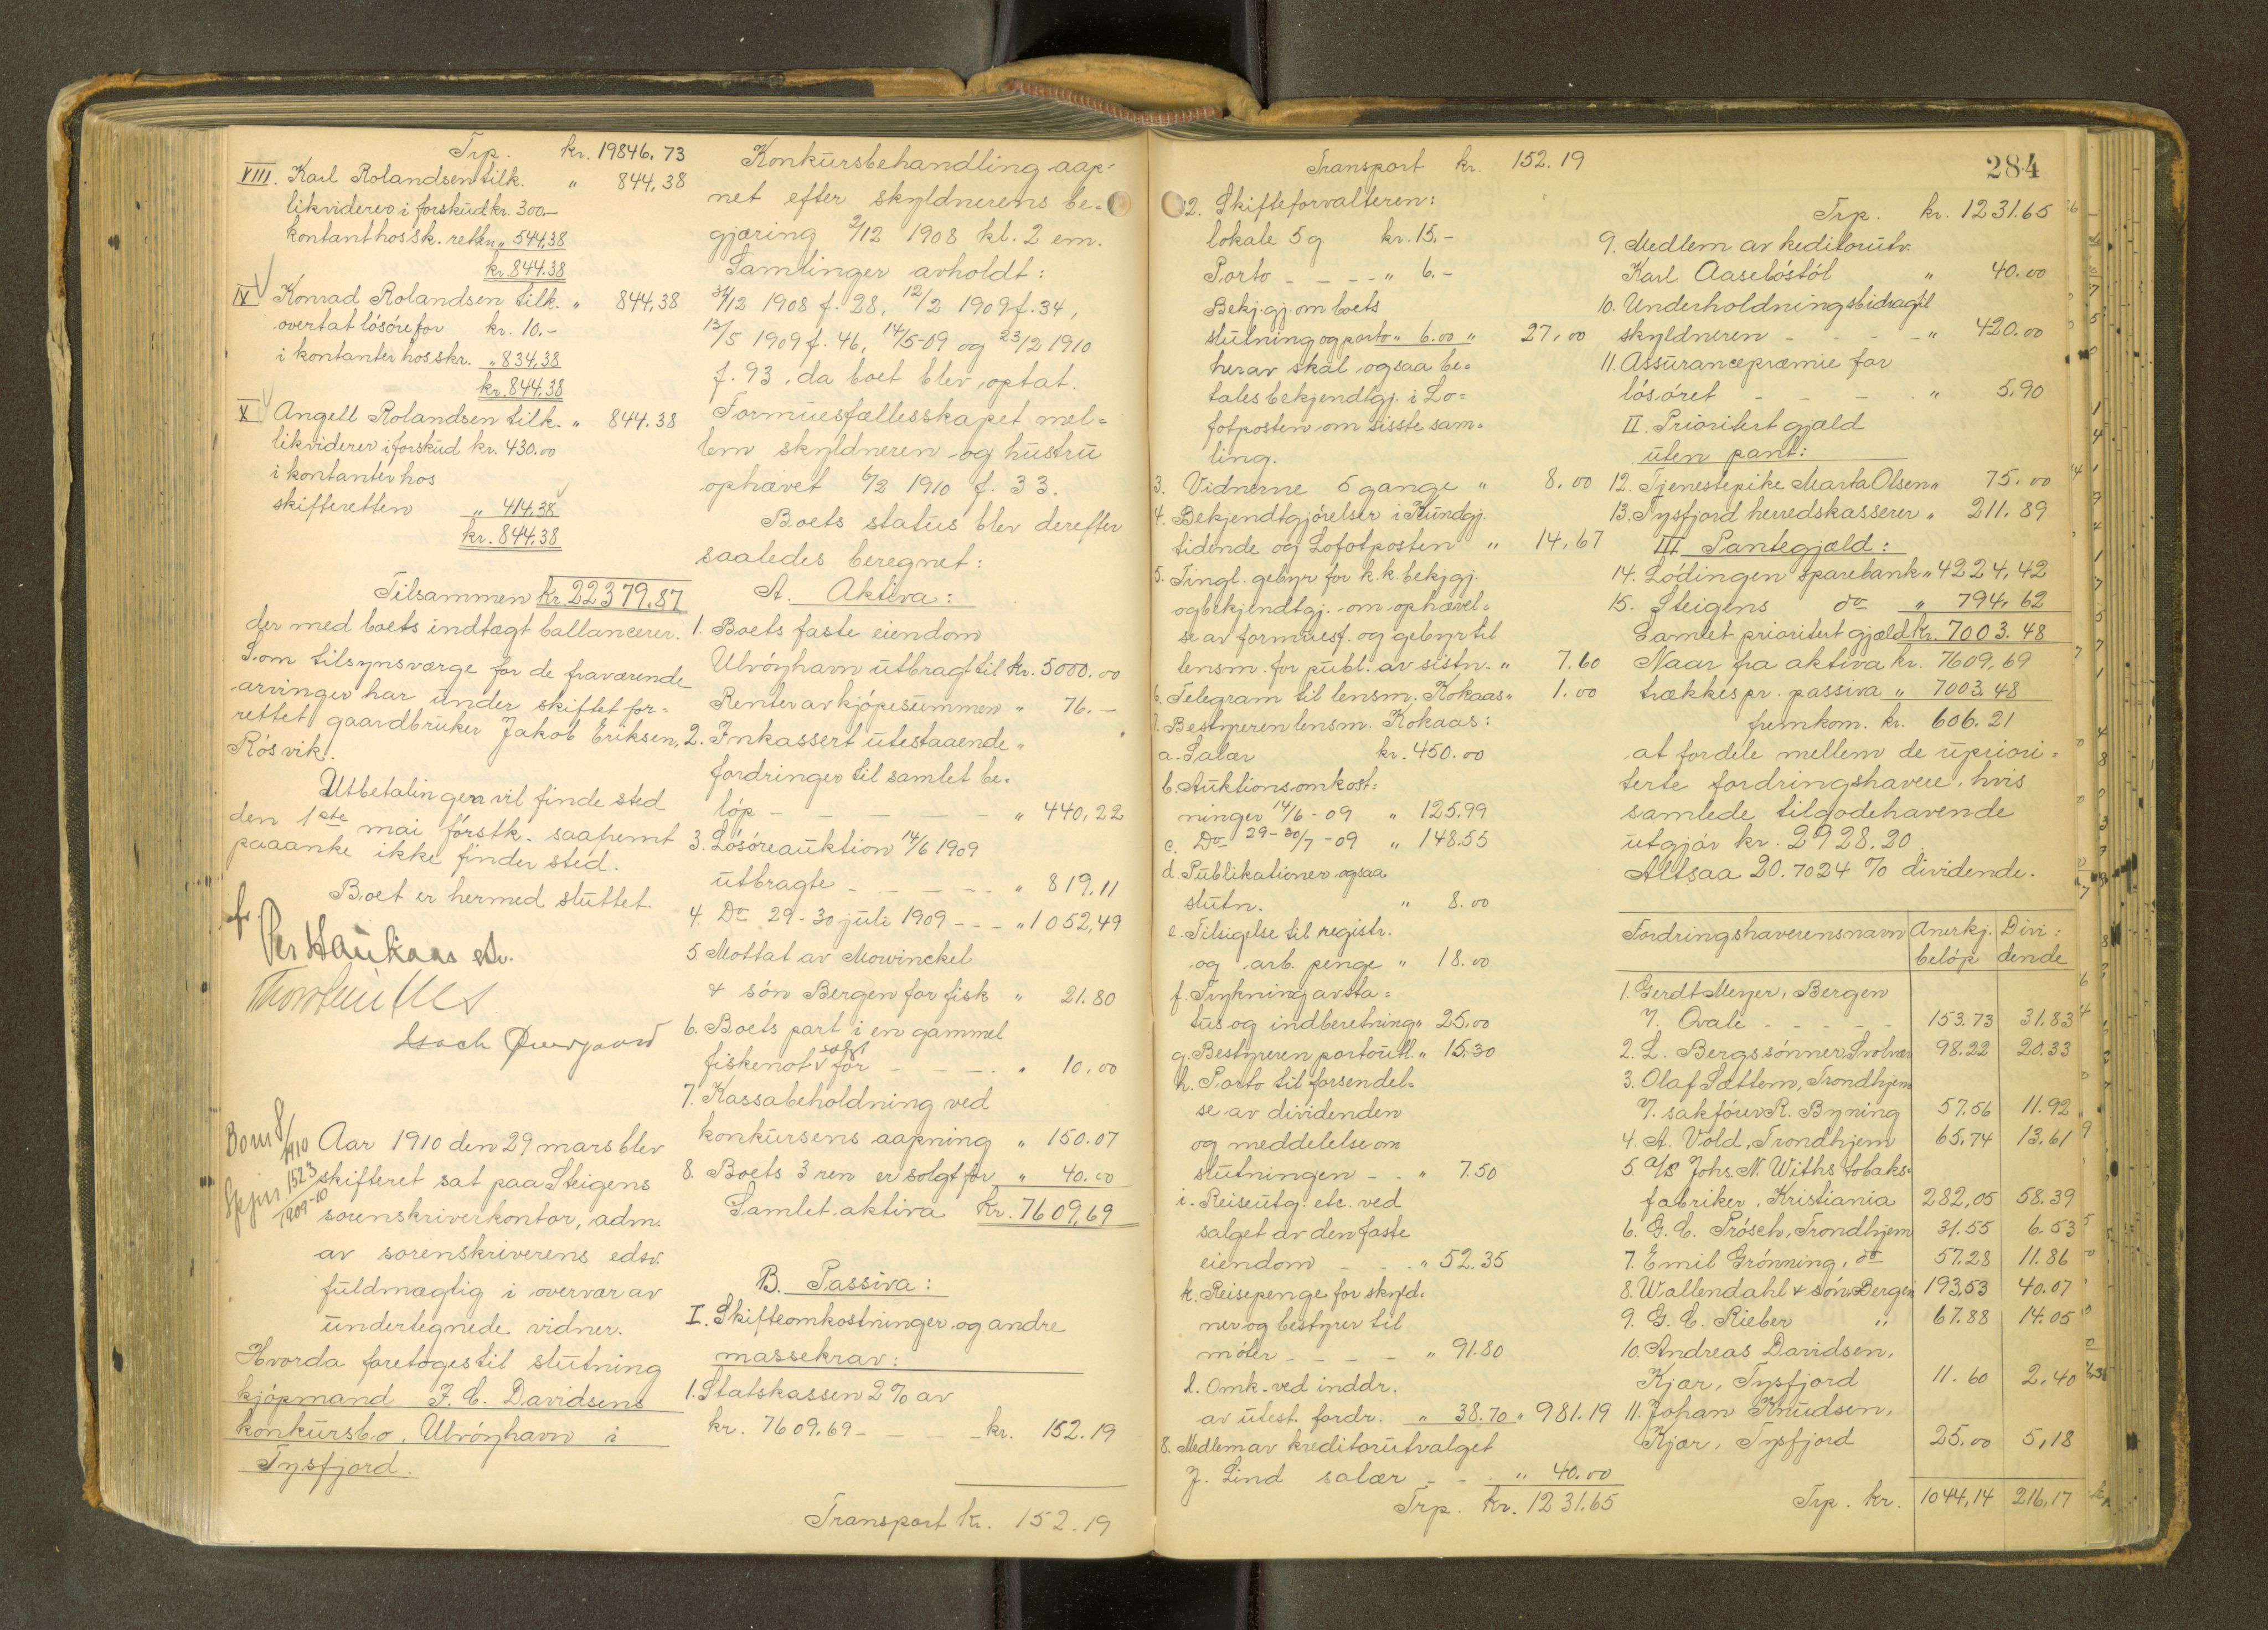 Trp. kr. 19846.73
VIII. Karl Rolandsen tilk. " 844,38
likviderer i forskud kr. 300.–
kontant hos sk. retten " 544,38
kr. 844.38
IX Konrad Rolandsen tilk. " 844,38
overtat lösöre for kr. 10.–
i kontanter hos skr. " 834,38
kr. 844,38
X Angell Rolandsen tilk. " 844.38
likviderer i forskud kr. 430.00
i kontanter hos
skifteretten " 414.38
kr. 844,38
Tilsammen kr. 22379.87
der med boets indtægt ballancerer.
Som tilsynsværge for de fraværende
arvinger har under skiftet for=
rettet gaardbruker Jakob Eriksen,
Rösvik.
Utbetalingen vil finde sted
den 1ste mai förstk. saafremt
paaanke ikke finder sted.
Boet er hermed sluttet.
f.
Per Haukaas edv.
Aar 1910 den 29 mars blev
skifteret sat paa Steigens
sorenskriverkontor, adm.
av sorenskriverens edsv.
fuldmægtig i overvær av
undertegnede vidner.
Hvorda foretoges til slutning
kjöpmand J. C. Davidsens
konkursbo, Ulvöyhavn i
Tysfjord.
Konkursbehandling aap=
net efter skyldnerens be=
gjæring 2/12 1908 kl. 2 em.
Samlinger avholdt:
31/12 1908 f. 28, 12/2 1909 f. 34,
13/5 1909 f. 46, 14/5-09 og 23/2 1910
f. 93, da boet blev optat.
Formuesfællesskapet mel=
lem skyldneren og hustru
ophævet 6/2 1910 f. 33.
Boets status blev derefter
saaledes beregnet:
A. Aktiva:
1. Boets faste eiendom
Ulvöyhavn utbragt til kr. 5000.00
Renter av kjöpesummen " 76.–
2. Inkassert utestaaende "
fordringer til samlet be=
löp – – – – – " 440,22
3. Lösöreauktion 14/6 1909
utbragte – – – – – " 819,11
4. Do 29–30 juli 1909 – – – " 1052,49
5 Mottat av Mowinckel
& sön Bergen for fisk " 21.80
6. Boets part i en gammel
fiskenot solgt for – – – . " 10,00
7. Kassabeholdning ved
konkursens aapning " 150.07
8. Boets 3 ren er solgt for " 40.00
Samlet aktiva kr. 7609,69
B. Passiva:
I. Skifteomkostninger og andre
massekrav:
1. Statskassen 2% av
kr. 7609.69 – – – – kr. 152.19
Transport kr. 152.19
284
Transport kr. 152.19
2. Skifteforvalteren:
lokale 5 g kr. 15.–
Porto – – – – " 6.–
Bekj.gj. om boets
slutning og porto " 6.00 " 27.00
herav skal ogsaa be=
tales bekjendtgj. i Lo=
fotposten om sisste sam=
ling.
3. Vidnerne 5 gange " 8.00
4. Bekjendtgjörelser i Kundgj.
tidende og Lofotposten " 14,67
5. Tingl. gebyr for k.k. bekjgj.
og bekjendtgj. om ophævel=
se av formuesf. og gebyr til
lensm. for publ. av sistn. " 7.60
6. Telegram til lensm. Kokaas " 1.00
7. Bestyreren lensm. Kokaas:
a. Salær kr. 450.00
b. Auktionsomkost=
ninger 14/6-09 " 125,99
c. Do 29–30/7-09 " 148.55
d. Publikationer ogsaa
slutn. " 8.00
e. Tilsigelse til registr.
og arb. penge " 18.00
f. Trykning av sta=
tus og indberetning " 25,00
g. Bestyreren portoutl. " 15,30
h. Porto til forsendel=
se av dividenden
og meddelelse om
slutningen – – " 7.50
i. Reiseutg. etc. ved
salget av den faste
eiendom – – . " 52.35
k. Reisepenge for skyld=
ner og bestyrer til
möter – – – – " 91.80
l. Omk. ved inddr.
av utest. fordr. " 38.70 " 981.19
8. Medlem av kreditorutvalget
J. Lind salær – – . " 40.00
Trp. kr. 1231.65
Trp. kr. 1231.65
9. Medlem av keditorutv.
Karl Aasebøstöl " 40.00
10. Underholdningsbidrag til
skyldneren – – – – " 420.00
11. Assurancepræmie for
lösöret – – – . " 5,90
II. Prioritert gjæld
uten pant:
12. Tjenestepike Marta Olsen " 75.00
13. Tysfjord herredskasserer " 211.89
III Pantegjæld:
14. Lödingen sparebank " 4224,42
15. Steigens do " 794,62
Samlet prioritert gjæld kr. 7003.48
Naar fra aktiva kr. 7609,69
trækkes pr. passiva " 7003.48
fremkom. kr. 606.21
at fordele mellem de upriori=
terte fordringshavere, hvis
samlede tilgodehavende
utgjör kr. 2928.20
Altsaa 20.7024 % dividende.
Fordringshaverens navn Anerkj. belöp Divi=dende
1. Gerdt Meyer, Bergen
V. Ovale – – – – – 153.73 31.83
2. L. Bergs sönner, Svolvær 98.22 20.33
3. Olaf Sættem, Trondhjem
V. sakförer R. Byning 57.56 11.92
4. A. Vold, Trondhjem 65,74 13.61
5. A/S Johs. N. Withs tobaks=
fabriker, Kristiania 282,05 58.39
6. G. C. Prösch, Trondhjem 31.55 6.53
7. Emil Grönning, do 57.28 11.86
8. Wallendahl & sön Bergen 193,53 40.07
9. G. C. Rieber " 67.88 14.05
10. Andreas Davidsen,
Kjær, Tysfjord 11.60 2,40
11. Johan Knudsen,
Kjær, Tysfjord 25.00 5,18
Trp. kr. 1044,14 216,17